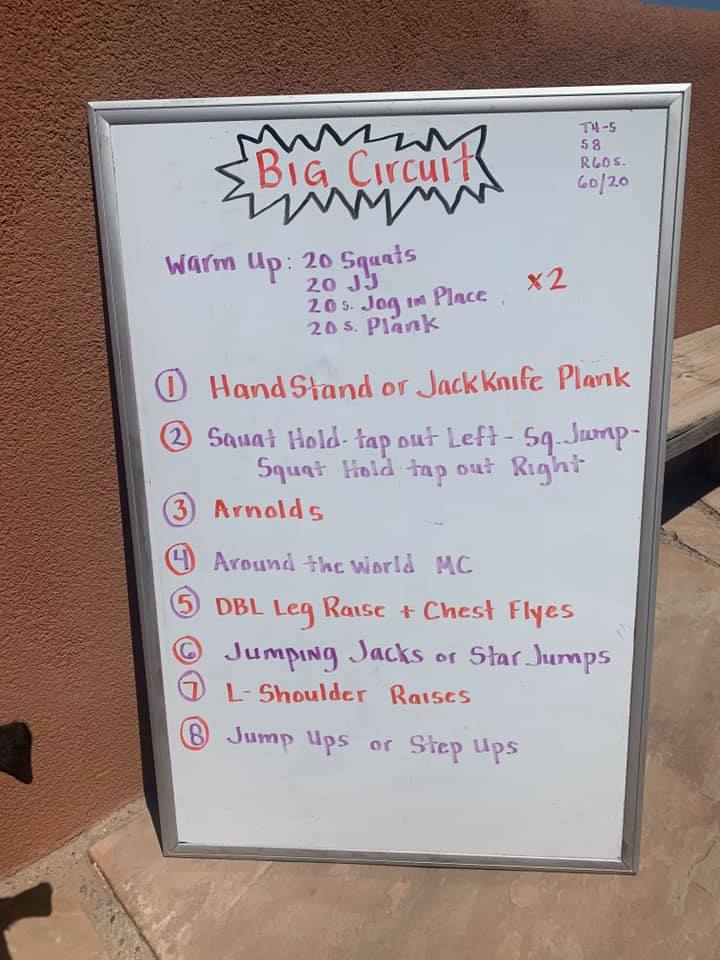 Big Circuit
T4-5
S8
R60s.
60/20
Warm Up: 20 Squats
20 JJ
20s. Jog in Place
20s. Plank
x2
1 HandStand or JackKnife Plank
2 Squat Hold-tap out Left - Sq. Jump-
Squat Hold tap out Right
3 Arnolds
4 Around the World MC
5 DBL Leg Raise + Chest Flyes
6 Jumping Jacks or Star Jumps
7 L-Shoulder Raises
8 Jump Ups or Step Ups